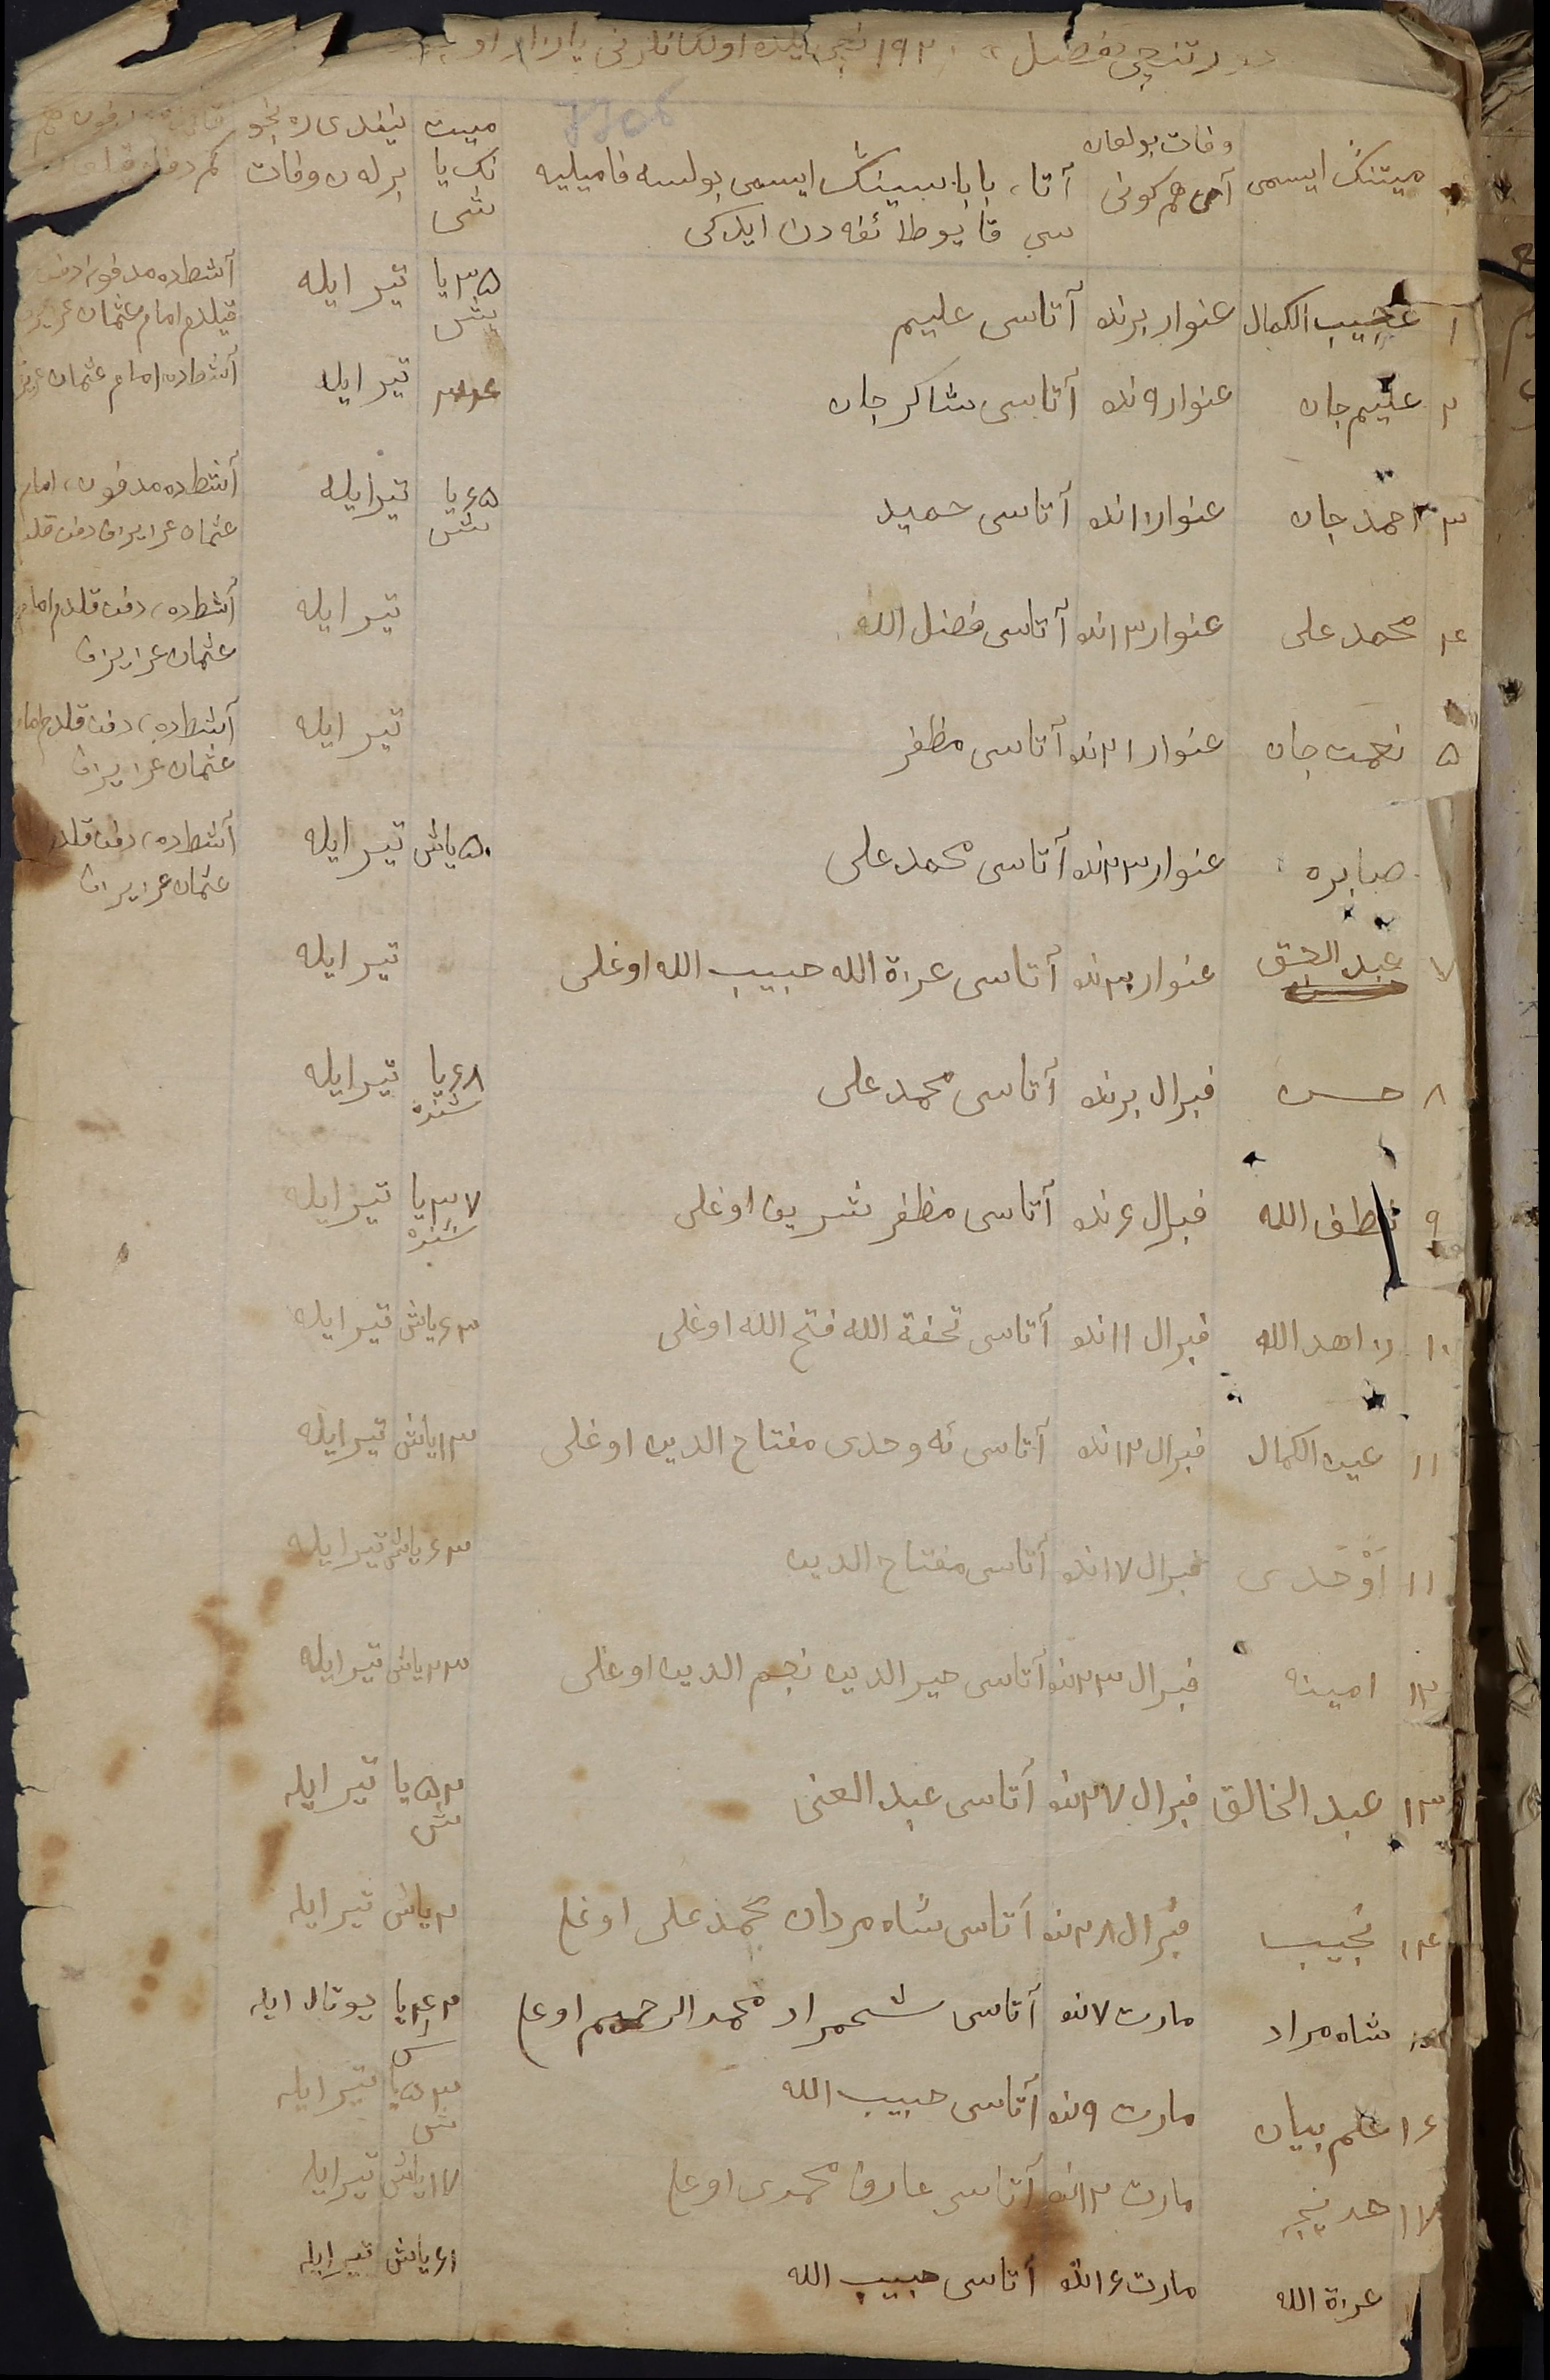 دورتنچی فصل ١٩٢٠ نچی یلده اولگانلرنی یازار اوچون
میتنڭ ایسمی وفات بولغان آی هم کونی آتا، باباسینڭ ایسمی بولسه فامیلیه سی قایو طائفه دن ایدکی میت نڭ یاشی نیندی رنجو برله ن وفات
١ عجیب الکمال عنوار برنده آتاسی علیم ٣٥ یاش تیر ایله آنشطاده مدفون دفن قیلدم امام عثمان
٢ علیم جان عنوار ٩ نده آتاسی شاکر جان تیر ایله آنشطاده امام عثمان
٣ احمد جان عنوار ١١ نده آتاسی حمید ٦٥ یاش تیر ایله آنشطاده مدفون، امام عثمان عزیزاف دفن قلد
٤ محمد علی عنوار ١٣ نده آتاسی فضل الله تیر ایله آنشطاده، دفن قلدم امام عثمان عزیزاف
٥ نعمت جان عنوار ٢١ نده آتاسی مظفر تیر ایله آنشطاده، دفن قلدم امام عثمان عزیزاف
صابره عنوار ٢٣ نده آتاسی محمد علی ٥٠ یاش تیر ایله آنشطاده، دفن قلد عثمان عزیزاف
٧ عبد الحق عنوار ٣٠ نده آتاسی عزة الله حبیب الله اوغلی تیر ایله
٨ حسن فبرال برنده آتاسی محمد علی ٦٨ یاشنده تیر ایله
٩ لطف الله فبرال ٦ نده آتاسی مظفر شریف اوغلی ٣٧ یاشنده تیر ایله
١٠ زاهد الله فبرال ١١ نده آتاسی تحفة الله فتح الله اوغلی ٦٣ یاش تیر ایله
١١ عین الکمال فبرال ١٢ نده آتاسی ئه وحدی مفتاح الدین اوغلی ١٣ یاش تیر ایله
١١ اَوْحَدی فبرال ١٧ نده آتاسی مفتاح الدین ٦٣ یاش تیر ایله
١٢ امینه فبرال ٢٣ نده آتاسی خیر الدین نجم الدین اوغلی ٢٣ یاش تیر ایله
١٣ عبد الخالق فبرال ٢٧ نده آتاسی عبد الغنی ٥٢ یاش تیر ایله
١٤ نجیب فبرال ٢٨ نده آتاسی شاه مردان محمد علی اوغلی ٢ یاش تیر ایله
شاه مراد مارت ٧ نده آتاسی شحمراد محمد الرحیم اوغلی ٤٢ یاش یوتال ایله
١٦ علم بیان مارت ٩ نده آتاسی حبیب الله ٥٣ یاش تیر ایله
١٧ خدیجه مارت ١٢ نده آتاسی عارف محمدی اوغلی ١٧ یاش تیر ایله
عزة الله مارت ١٦ نده آتاسی حبیب الله ٦١ یاش تیر ایله